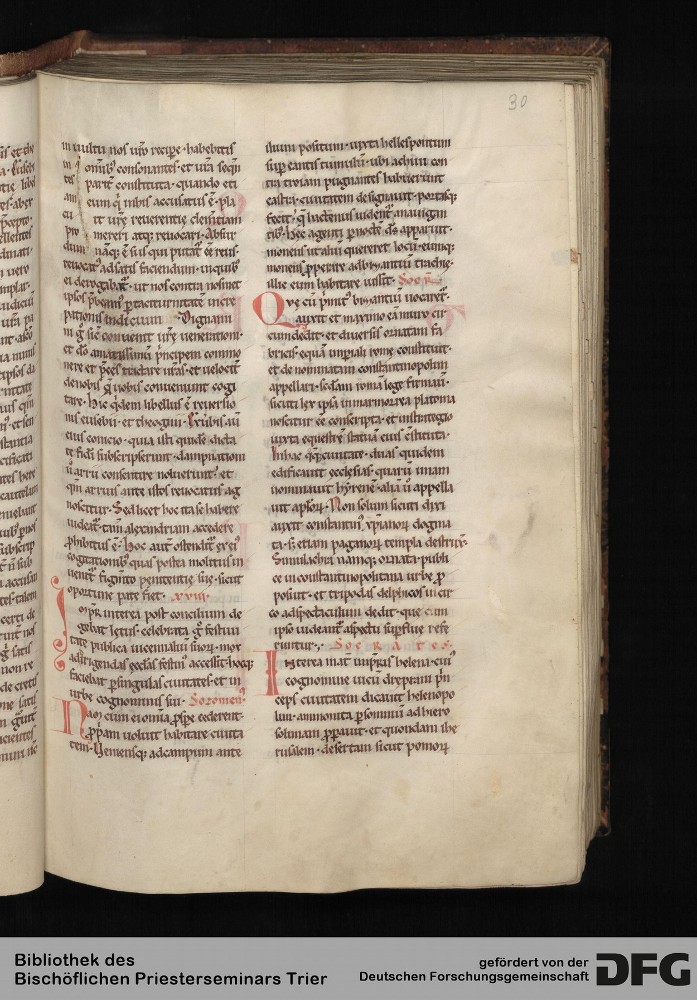 30
in uultu nos ur̄o recipe · habebitis
in omib; consonantes · et urā seqm̄
parte constituta · quando eti
am cum q̄ in his accusatus ē · pla
cu it urē reuerentie clem̄tiam
pro mereri atq; reuocari · Absur
dum nāq; ē
reuocat' ad satis faciendum · in quib;
ei derogabat̄ · ut nos contra nosmet
ipsos p̄beam' p taciturnitatē incre
pationis indicium Dignami
ni g̊ sic conuenit urē uenerationi ·
et dō amatissimū p̄ncipem commo
nere et p̄ces tradere urās · et uelocit̄
de nobis q̄ uobis conueniunt cogi
tare · Hic q̄dem libellus ē reuersio
nis eusebii · et theognii · Ex uerbis aū
eius conicio · quia isti quidē dicta
te fidi subscripserunt · dampnationi
ū arrii consentire noluerunt · et
qm̄ arrius ante istos reuocatus ag
noscitur · Sed licet hoc ita se habere
uideat̄ · tam̄ alexandriam accedere
phibitus ē · Hoc aut̄ ostendit̄ ex ei'
cogitationib; quas postea molitus in
uenit̄ fingendo penitentie sue · sicut
oportune pate fiet · xviii ·
Imp̄r interea post concilium de
gebat letus · celebrata q; festiui
tate publica uicennaliū suor; · mox
ad erigendas ecclas festin' accessit · hocq;
faciebat p singulas ciuitates · et in
urbe cognominis sui · Sozomen'
Nāq; cum ei omia p̄spe cederent ·
pp̄am uoluit habitare ciuita
tem · Veniensq; ad campum ante
ilium positum · iuxta hellespontum
sup eantis tumulū · ubi achiui con
tra troiam pugnantes habuerunt
castra · ciuitatem designauit · portasq;
fecit · q̄ hactenus uident̄ a nauigan
tib; · Hec agenti p noctē dū apparuit ·
monens ut aliū quereret locū · eumq;
monens pperare ad bizantiū trachie ·
illic eum habitare iussit · Socr̄
Qvę cū primit' bizantiū uocaret̄ ·
auxit et maximo eā muro cir
cumdedit · et diuersis ornatam fa
bricis · equā imperiali rome constituit ·
et de nominatam constantinopolim
appellari · sc̄dam roma lege firmauit ·
sicuti lex ipsa in marmorea platona
noscitur eē conscripta · et in strategio
iuxta equestrē statuā eius cōstituta ·
In hac q̄q; ciuitate · duas quidem
edificauit ecclesias · quarū unam
nominauit hyrenē · aliā ū appella
uit aplor; · Non solum sicuti dixi
auxit constantin' xp̄ianor; dogma
ta · s; etiam paganor; templa destrux̄ ·
Simulachra namq; ornata · publi
ce in constantinopolitana urbe p
posuit · et tripodas delphicos in cir
co ad spectaculum dedit · que cum
ipso uideant̄ aspectu supflue refe
runtur · Socrates ·
Interea mat̄ imp̄ris helena · cui'
cognomine uicū drepranū p̄n
ceps ciuitatem dicauit helenopo
lim · ammonita p somnium ad hiero
solimam pparauit · et quondam ihe
rusalem · desertam sicut pomor;
Bibliothek des
Bischöflichen Priesterseminars Trier
gefördert von der
Deutschen Forschungsgemeinschaft
DFG